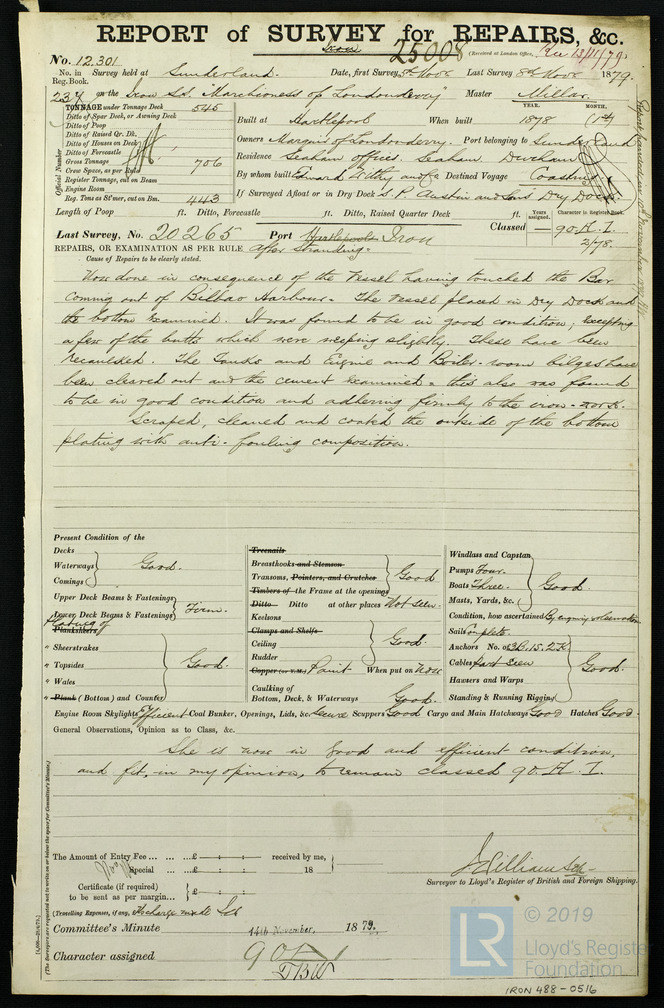 REPORT of SURVEY for REPAIRS, &c.
Iron 25008 (Received at London Office, Rec 13/11/79)
No. 12.301
No. in Survey held at Sunderland. Date, first Survey 5th Novr Last Survey 5th Novr 1879.
Reg. Book.
237 on the Iron S.S. Marchioness of Londonderry" Master Millar
TONNAGE under Tonnage Deck 545
Ditto of Spar Deck, or Awning Deck
Ditto of Poop
Ditto of Raised Qr. Dk.
Ditto of Houses on Deck
Ditto of Forecastle
Gross Tonnage 706
Crew Space, as per Rule
Register Tonnage, cut on Beam
Engine Room
Reg. Tons as St'mer, cut on Bm. 443
Official Number
YEAR. MONTH.
Built at Hartlepool When built 1878 (1st)
Owners Marquis of Londonderry. Port belonging to Sunderland
Residence Seaham offices. Seaham. Durham
By whom built Edward Withy and Co Destined Voyage Coasting
If Surveyed Afloat or in Dry Dock S. P. Austin and Sons Dry Dock.
Length of Poop ft. Ditto, Forecastle ft. Ditto, Raised Quarter Deck ft.
Years assigned. Character in Register Book.
Last Survey, No. 20265 Port Hartlepools Iron Classed — 90. A. 1. 2/78.
REPAIRS, OR EXAMINATION AS PER RULE after Stranding.
Cause of Repairs to be clearly stated.
Now done in consequence of the Vessel having touched the Bar
coming out of Bilbao Harbour. The Vessel placed in Dry Dock and
the bottom examined. It was found to be in good condition, excepting
a few of the butts which were weeping slightly. These have been
recaulked. The Tanks and Engine and Boiler-room bilges have
been cleared out and the cement examined = this also was found
to be in good condition and adhering firmly to the iron-work.
Scraped, cleaned and coated the outside of the bottom
plating with anti-fouling composition.
Present Condition of the
Decks
Waterways Good.
Comings
Upper Deck Beams & Fastenings
Lower Deck Beams & Fastenings Firm.
Plating of
Planksheers
" Sheerstrakes
" Topsides Good.
" Wales
" Plank (Bottom) and Counter
Treenails
Breasthooks and Stemson
Transoms, Pointers, and Crutches Good
Timbers of the Frame at the openings
Ditto Ditto at other places Not seen.
Keelsons
Clamps and Shelfs
Ceiling Good.
Rudder
Copper (or Y.M.) Paint When put on Now
Caulking of
Bottom, Deck, & Waterways Good.
Windlass and Capstan
Pumps Four.
Boats Three. Good.
Masts, Yards, &c.
Condition, how ascertained By enquiry & observation
Sails Complete.
Anchors No. of 3B. 1S. 2K.
Cables part seen Good.
Hawsers and Warps
Standing & Running Rigging
Engine Room Skylights Efficient Coal Bunker, Openings, Lids, &c. Secure Scuppers Good Cargo and Main Hatchways Good Hatches Good.
General Observations, Opinion as to Class, &c.
She is now in good and efficient condition,
and fit, in my opinion, to remain classed 90. A. 1.
The Amount of Entry Fee ... ... ... £ : : received by me,
Special ... ... £ : : 18
Certificate (if required) £ : :
to be sent as per margin...
(Travelling Expenses, if any, No charge made
Surveyor to Lloyd's Register of British and Foreign Shipping.
Committee's Minute 14th November, 1879.
Character assigned 90A1
© 2019
LR
Lloyd's Register
Foundation
IRON 488-0516